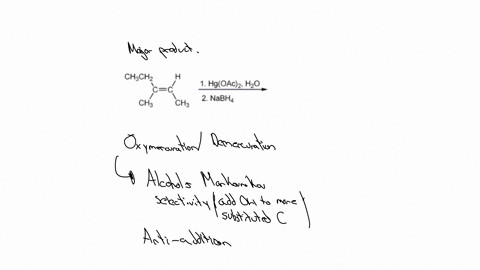 Major product.
CH₃CH₂ H
C=C
CH₃ CH₃
1. Hg(OAc)₂, H₂O
2. NaBH₄
Oxymercuration/ Demercuration
Alcohols Markovnikov
selectivity (add OH to more
substituted C)
Anti-addition